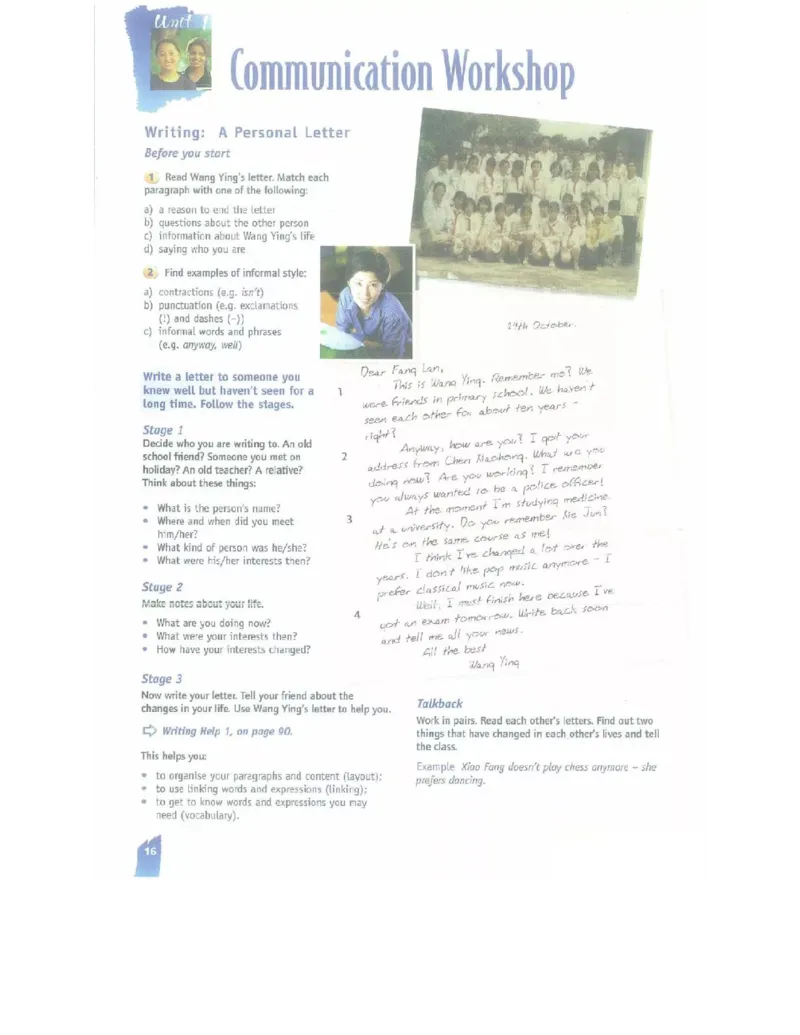 Unit 1
Communication Workshop
Writing: A Personal Letter
Before you start
1 Read Wang Ying's letter. Match each
paragraph with one of the following:
a) a reason to end the letter
b) questions about the other person
c) information about Wang Ying's life
d) saying who you are
2 Find examples of informal style:
a) contractions (e.g. isn't)
b) punctuation (e.g. exclamations
(!) and dashes (–))
c) informal words and phrases
(e.g. anyway, well)
Write a letter to someone you
knew well but haven't seen for a
long time. Follow the stages.
Stage 1
Decide who you are writing to. An old
school friend? Someone you met on
holiday? An old teacher? A relative?
Think about these things:
• What is the person's name?
• Where and when did you meet
him/her?
• What kind of person was he/she?
• What were his/her interests then?
Stage 2
Make notes about your life.
• What are you doing now?
• What were your interests then?
• How have your interests changed?
Stage 3
Now write your letter. Tell your friend about the
changes in your life. Use Wang Ying's letter to help you.
Writing Help 1, on page 90.
This helps you:
• to organise your paragraphs and content (layout);
• to use linking words and expressions (linking);
• to get to know words and expressions you may
need (vocabulary).
October
Dear Fang Lan,
1 This is Wang Ying. Remember me? We
were friends in primary school. We haven't
seen each other for about ten years –
right?
Anyway, how are you? I got your
2 address from Chen Xiaohong. What are you
doing now? Are you working? I remember
you always wanted to be a police officer!
At the moment I'm studying medicine
3 at a university. Do you remember Jun?
He's on the same course as me!
I think I've changed a lot over the
years. I don't like pop music anymore – I
prefer classical music now.
Well, I must finish here because I've
4 got an exam tomorrow. Write back soon
and tell me all your news.
All the best
Wang Ying
Talkback
Work in pairs. Read each other's letters. Find out two
things that have changed in each other's lives and tell
the class.
Example Xiao Fang doesn't play chess anymore – she
prefers dancing.
16